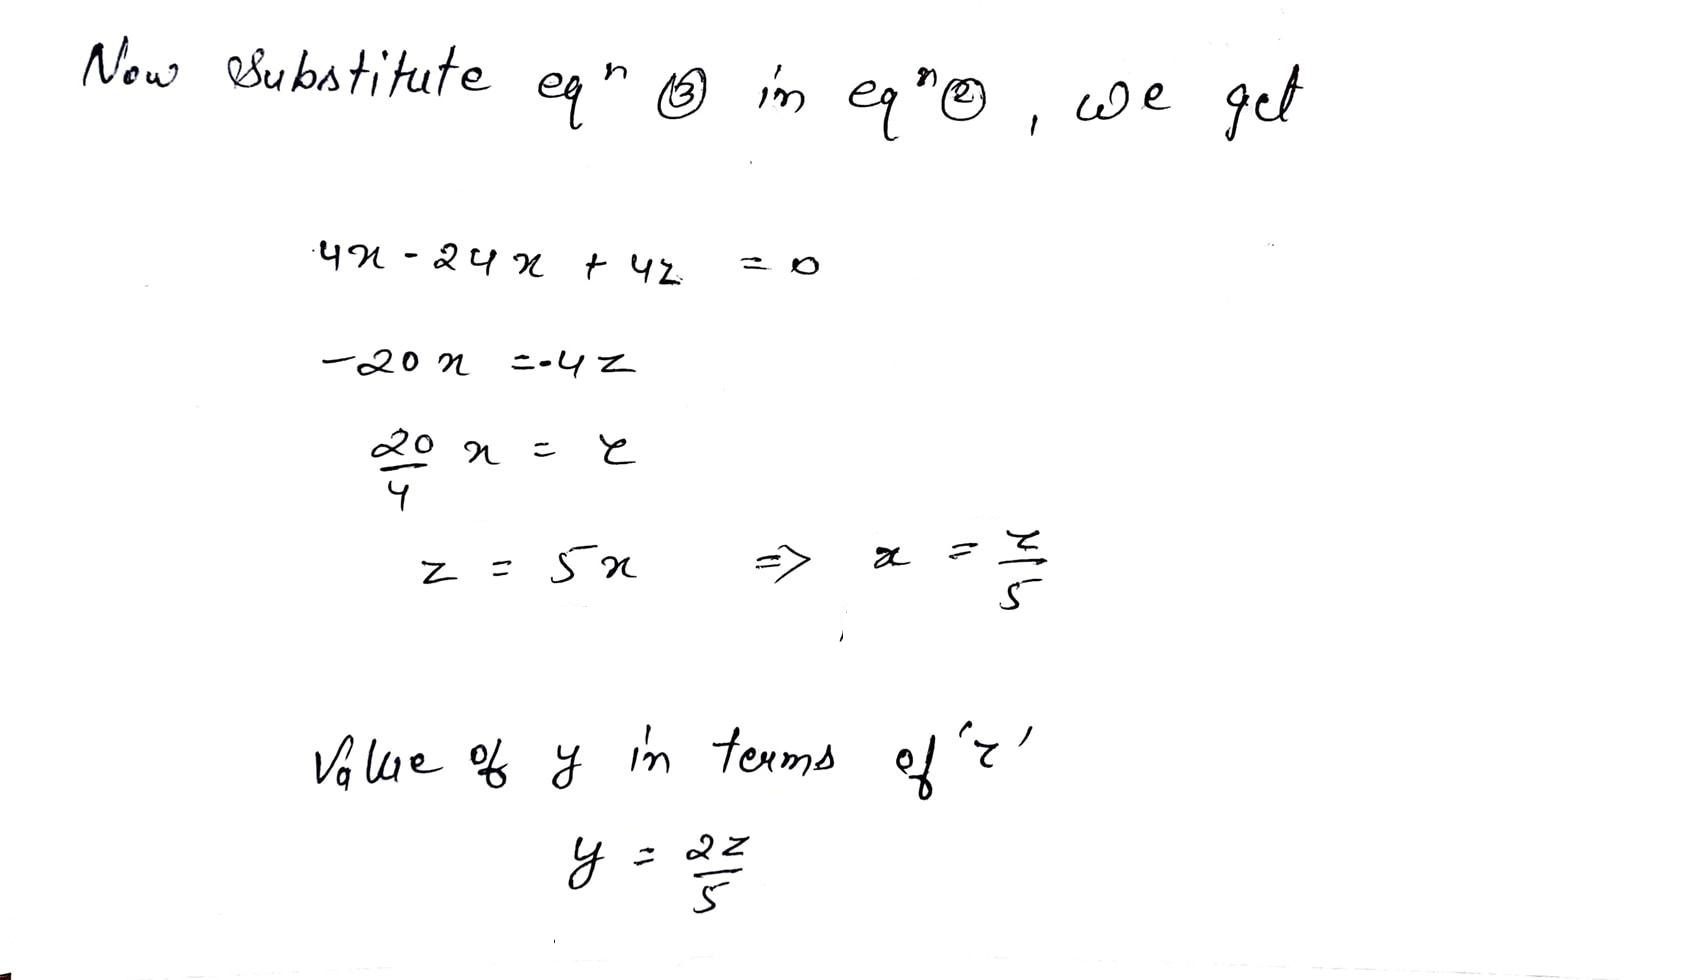 Now Substitute eqⁿ ③ in eqⁿ ②, we get
4x - 24x + 4z = 0
-20x = -4z
20/4 x = z
z = 5x => x = z/5
Value of y in terms of 'z'
y = 2z/5